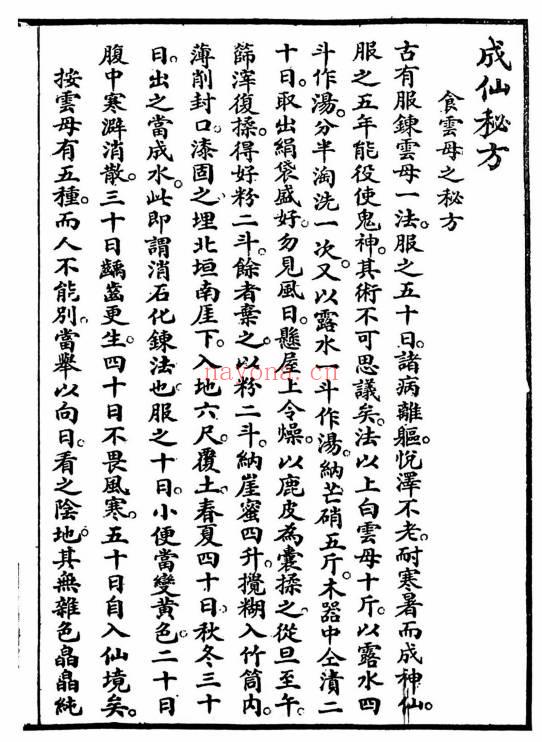 成仙秘方
食雲母之秘方
古有服鍊雲母一法。服之五十日。諸病離軀。悅澤不老。耐寒暑而成神仙。
服之五年能役使鬼神。其術不可思議矣。法以上白雲母十斤。以露水四
斗作湯。分半淘洗一次。又以露水一斗作湯。納芒硝五斤。木器中仝漬二
十日。取出絹袋盛好。勿見風日。懸屋上令燥。以鹿皮為囊揉之。從旦至午。
篩滓復揉。得好粉二斗。餘者棄之。以粉二斗。納崖蜜四升。攪糊入竹筒內。
薄削封口。漆固之。埋北垣南厓下。入地六尺。覆土。春夏四十日。秋冬三十
日。出之當成水。此即謂消石化鍊法也。服之十日。小便當變黃色。二十日
腹中寒澼消散。三十日齲齒更生。四十日不畏風寒。五十日自入仙境矣。
按雲母有五種。而人不能別。當舉以向日。看之陰地。其無雜色晶晶純
nayona.cn